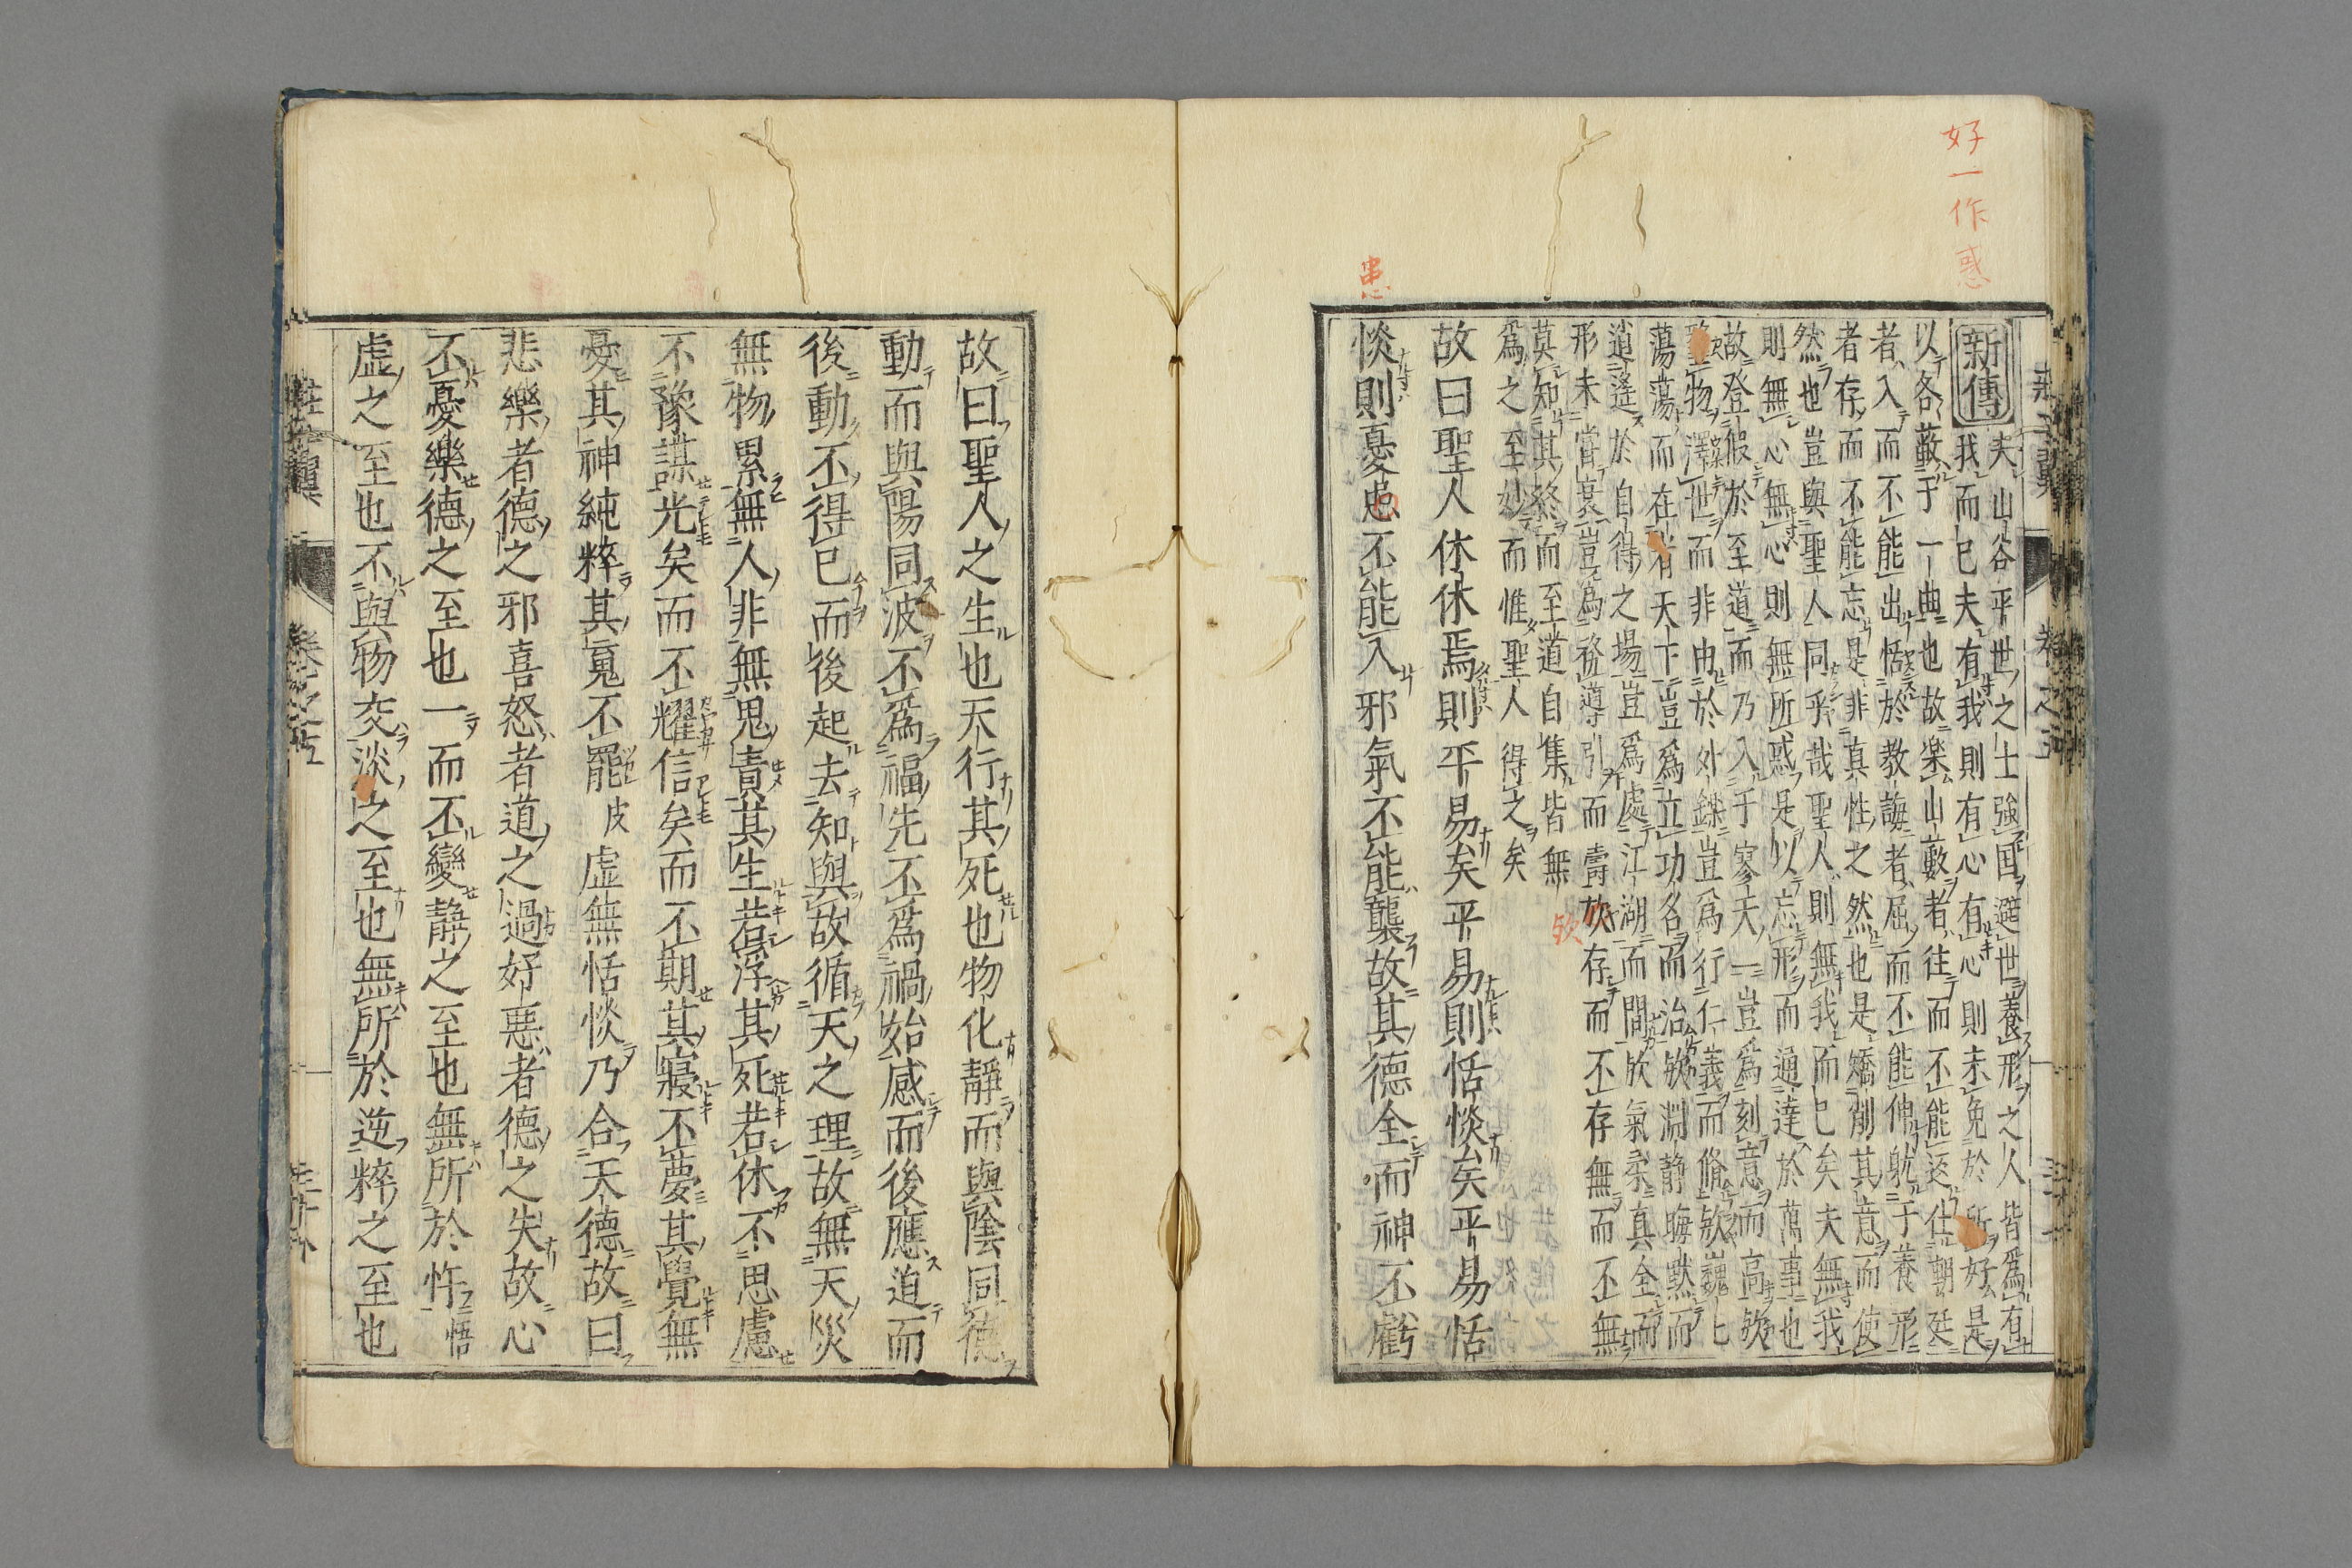 好一作惑
患
新傳
夫山谷平世之士強国避世養形之人皆爲有
我而已夫有我則有心有心則未免於所好是
以各蔽于一曲也故楽山藪者往而不能返仕朝廷
者入而不能出恬於教誨者屈而不能伸躭于養形
者存而不能忘是非真性之然也是矯削其意而使
然也豈與聖人同乎哉聖人則無我而已矣夫無我
則無心無心則無所惑是以忘形而通達於萬事也
故登假於至道而乃入于寥天一豈爲刻意而高欤
物澤世而非由於外鑠豈爲行仁義而脩欤巍乜
蕩蕩而在宥天下豈爲立功名而治欤淵静晦黙而
逍遥於自得之場豈爲處江湖而間欤氣柔真全而
形未嘗衰豈為務導引而壽欤存而不存無而不無
莫知其終而至道自集皆無
爲之至妙而惟聖人得之矣
欤
故曰聖人休休焉則平易矣平易則恬惔矣平易恬
惔則憂患不能入邪氣不能襲故其德全而神不虧
故曰聖人之生也天行其死也物化靜而與陰同德
動而與陽同波不爲福先不爲禍始感而後應迫而
後動不得已而後起去知與故循天之理故無天災
無物累無人非無鬼責其生若浮其死若休不思慮
不豫謀光矣而不耀信矣而不期其寢不夢其覺無
憂其神純粹其䰟不罷皮虛無恬惔乃合天德故曰
悲樂者德之邪喜怒者道之過好惡者德之失故心
不憂樂德之至也一而不變靜之至也無所於忤悟
虛之至也不與物交淡之至也無所於逆粹之至也